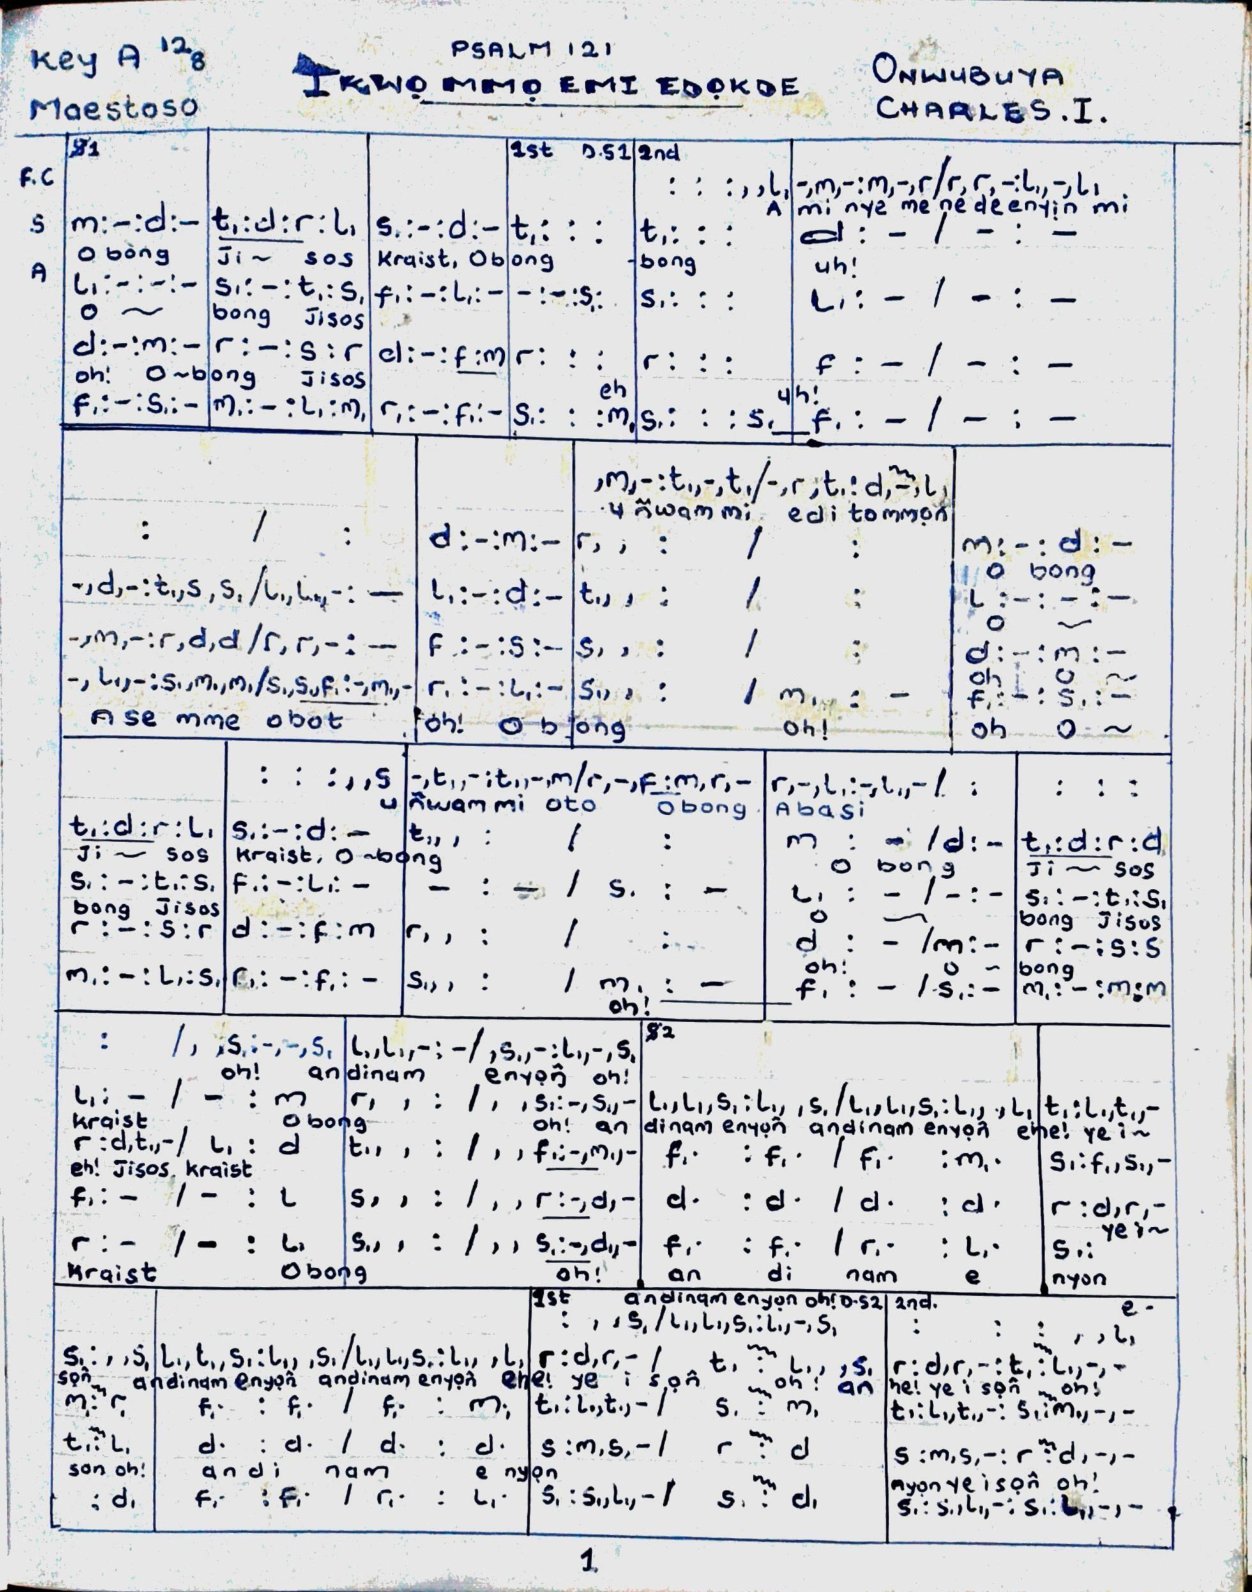 Key A 12/8
PSALM 121
IKWỌ MMỌ EMI EDỌKDE
ONWUBUYA
Maestoso
CHARLES . I.
§1
1st D.S1
2nd
F.C
: : :,,l,
-,m,-:m,-,r/r,r,-:l,,-,l,
A mi nye me ne de enyin mi
S
m:-:d:-
t,:d:r:l,
s,:-:d:-
t,: : :
t,: : :
d : - / - : -
O bong
Ji ~ sos
Kraist, Obong
-bong
uh!
A
l,:-:-:-
s,:-:t,:s,
f,:-:l,:-
-:-:s,:
s,: : :
l,: - / - : -
O ~
bong Jisos
d:-:m:-
r:-:s:r
d:-:f:m
r: : :
r: : :
f : - / - : -
oh! O~bong Jisos
eh
uh!
f,:-:s,:-
m,:-:l,:m,
r,:-:f,:-
s,: : :m,
s,: : :s,
f,: - / - : -
,m,-:t,,-,t,/-,r,t,:d,-,l,
u ñwam mi edi tommọñ
: / :
d:-:m:-
r, , : / :
m:-:d:-
O bong
-,d,-:t,,s,s,/l,,l,,-:-
l,:-:d:-
t,, , : / :
l:-:-:-
O ~
-,m,-:r,d,d/r,r,-:-
f:-:s:-
s, , : / :
d:-:m:-
oh O ~
-,l,,-:s,,m,,m,/s,,s,,f,:-,m,,-
r,:-:l,:-
s,, , : / m, : -
f,:-:s,:-
A se mme obot
oh! O bong
oh!
oh O ~
: : :,,s
-,t,,-:t,,-,m/r,-,f:m,r,-
r,-,l,:-,l,,-/ :
: : :
u ñwam mi oto Obong
Abasi
t,:d:r:l,
s,:-:d:-
t,, , : / :
m : - /d:-
t,:d:r:d
Ji ~ sos
Kraist, O~bong
O bong
Ji ~ sos
s,:-:t,:s,
f,:-:l,:-
- : - / s, : -
l, : - /-:-
s,:-:t,:s,
bong Jisos
O ~
bong Jisos
r:-:s:r
d:-:f:m
r, , : / :
d : - /m:-
r:-:s:s
oh! O ~
bong
m,:-:l,:s,
r,:-:f,:-
s,, , : / m, : -
f, : - /s,:-
m,:-:m:m
oh!
§2
: /, ,s,:-,-,s,
l,,l,,-:-/,s,,-:l,,-,s,
oh! andinam enyọñ oh!
l,:- / - : m
r, , : / , ,s,:-,s,,-
l,,l,,s,:l,, ,s,/l,,l,,s,:l,, ,l,
t,:l,,t,,-
Kraist Obong
oh! an
dinam enyọñ andinam enyọñ ehe! ye i~
r:d,t,,-/ l, : d
t,, , : / , ,f,:-,m,,-
f,. :f,. / f,. :m,.
s,:f,,s,,-
eh! Jisos Kraist
f,:- / - : l
s, , : / , ,r:-,d,-
d. :d. / d. :d.
r:d,r,-
ye i~
r:- / - : l,
s,, , : / , ,s,:-,d,,-
f,. :f,. / r,. :l,.
s,:
Kraist Obong
oh!
an di nam e
nyon
1st andinam enyọn oh! D.S2
2nd.
e-
: , ,s,/l,,l,,s,:l,,-,s,
: : : , ,l,
s,: , ,s,
l,,t,,s,:l,, ,s,/l,,l,,s,:l,, ,l,
r:d,r,-/ t, : l,, ,s,
r:d,r,-:t,:l,,-,-
sọñ andinam enyọñ andinam enyọñ ehe! ye i sọñ oh! an
he! ye i sọñ oh!
m,:r,
f,. :f,. / f,. :m,
t,:l,,t,,-/ s, : m,
t,:l,,t,,-:s,:m,,-,-
t,:l,
d. :d. / d. :d.
s:m,s,-/ r : d
s:m,s,-:r:d,-,-
son oh!
an di nam e nyọn
nyọn ye i sọñ oh!
:d,
f,. :f,. / r,. :l,.
s,:s,,l,,-/ s, : d,
s,:s,,l,,-:s,:l,,-,-
1